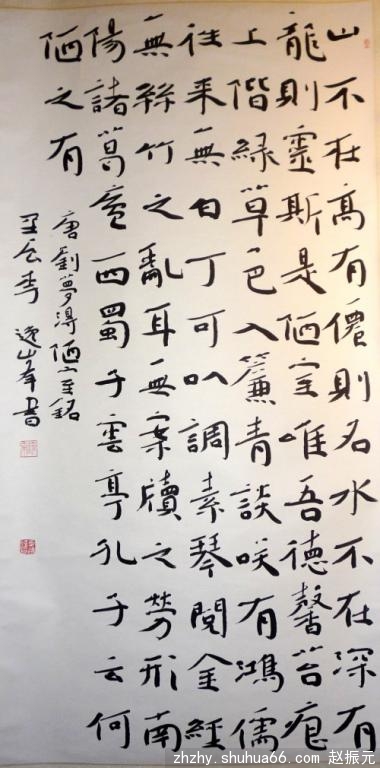 山不在高有僊則名水不在深有
龍則靈斯是陋室唯吾德馨苔痕
上階緑草色入簾青談咲有鴻儒
往来無白丁可㕥調素琴閱金經
無絲竹之亂耳無案牘之勞形南
陽諸葛廬西蜀子雲亭孔子云何
陋之有
唐劉夢得陋室銘
書
zhzhy.shuhua66.com 赵振元